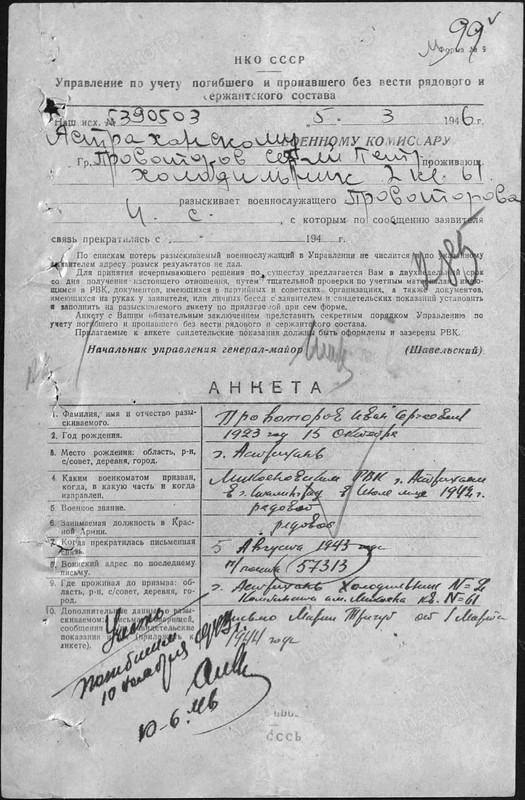 99
Форма № 9
НКО СССР
Управление по учету погибшего и пропавшего без вести рядового и
сержантского состава
Наш исх. № 5390503 5. 3 1946 г.
Астраханскому ВОЕННОМУ КОМИССАРУ
Гр. Провоторов проживающ.
Холодильник 2 кв. 61
разыскивает военнослужащего Провоторова
И. С. , с которым по сообщению заявителя
связь прекратилась с 194 г.
По спискам потерь разыскиваемый военнослужащий в Управлении не числится и по указанному
заявителем адресу, розыск результатов не дал.
Для принятия исчерпывающего решения по существу предлагается Вам в двухнедельный срок
со дня получения настоящего отношения, путем тщательной проверки по учетным материалам, имею-
щимся в РВК, документов, имеющихся в партийных и советских организациях, а также документов,
имеющихся на руках у заявителя, или личных бесед с заявителем и свидетельских показаний установить
и заполнить на разыскиваемого анкету по прилагаемой при сем форме.
Анкету с Вашим обязательным заключением представить секретным порядком Управлению по
учету погибшего и пропавшего без вести рядового и сержантского состава.
Прилагаемые к анкете свидетельские показания должны быть оформлены и заверены РВК.
Начальник управления генерал-майор (Шавельский)
АНКЕТА
1. Фамилия, имя и отчество разы-
скиваемого. Провоторов Иван Сергеевич
2. Год рождения. 1923 год 15 Октября
3. Место рождения: область, р-н,
с/совет, деревня, город. г. Астрахань
4. Каким военкоматом призван,
когда, в какую часть и когда
направлен. Микояновским РВК г. Астрахани
в г. Сталинград в Июле м-це 1942 г.
5. Военное звание. рядовой
6. Занимаемая должность в Крас-
ной Армии. рядовой
7. Когда прекратилась письменная
связь. 5 Августа 1943 года
8. Воинский адрес по последнему
письму. п/почта (57313)
9. Где проживал до призыва: об-
ласть, р-н, с/совет, деревня, го-
род. г. Астрахань Холодильник № 2
им. Микояна кв. № 61
10. Дополнительные данные о разы-
скиваемом: письма товарищей,
сообщения и свидетельские
показания (прилож. к
анкете). письмо Марии от 1 Марта
1944 года
Учесть
погибшим
10
10-6.
СССР